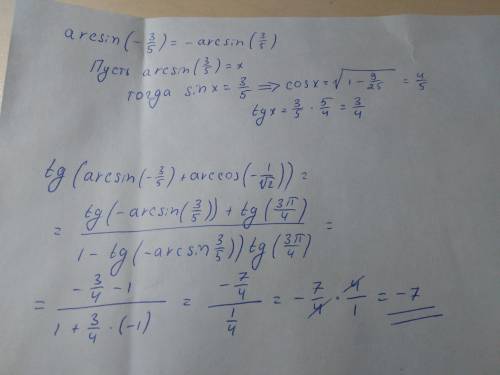 arcsin(-3/5) = -arcsin(3/5)
Пусть arcsin(3/5) = x
тогда sinx = 3/5 ⟹ cosx = √(1 - 9/25) = 4/5
tgx = 3/5 · 5/4 = 3/4
tg(arcsin(-3/5) + arccos(-1/√2)) =
= (tg(-arcsin(3/5)) + tg(3π/4)) / (1 - tg(-arcsin 3/5)) tg(3π/4)) =
= (-3/4 - 1) / (1 + 3/4 · (-1)) = (-7/4) / (1/4) = -7/4 · 4/1 = -7